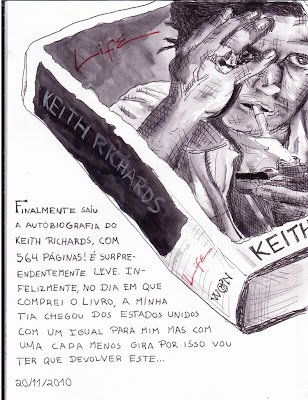 Life
KEITH RICHARDS
KEITH
Life
W&N
FINALMENTE SAÍU
A AUTOBIOGRAFIA DO
KEITH RICHARDS, COM
564 PÁGINAS! É SURPRE-
ENDENTEMENTE LEVE. IN-
FELIZMENTE, NO DIA EM QUE
COMPREI O LIVRO, A MINHA
TIA CHEGOU DOS ESTADOS UNIDOS
COM UM IGUAL PARA MIM MAS COM
UMA CAPA MENOS GIRA POR ISSO VOU
TER QUE DEVOLVER ESTE...
20/11/2010